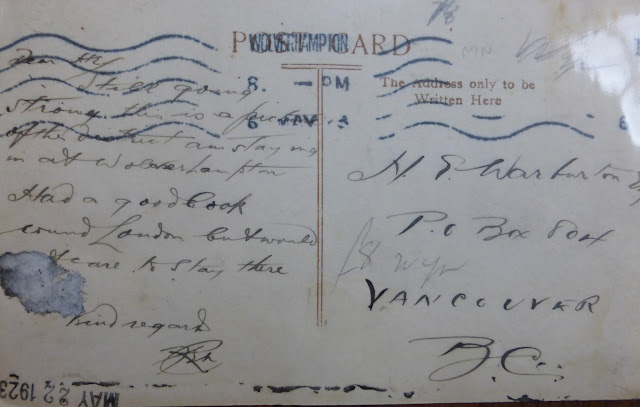 POST CARD
WOLVERHAMPTON
8. — PM
6 MAY
The Address only to be
Written Here
Dear
Still going
strong this is a picture
of the district am staying
in at Wolverhampton
Had a good look
round London but would
care to stay there
Kind regards
H. E. Warburton Esq
P.O Box 804
VANCOUVER
B.C.
MAY 22 1923